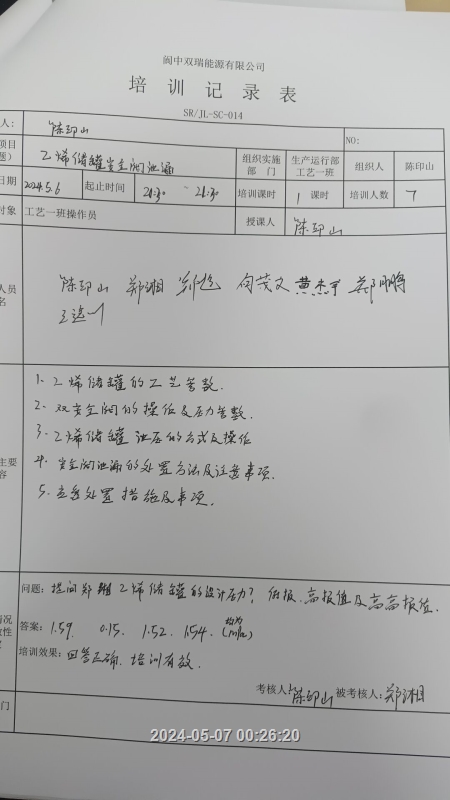 阆中双瑞能源有限公司
培训记录表
SR/JL-SC-014
人: 陈印山 NO:
项目 乙烯储罐安全阀泄漏 组织实施部门 生产运行部工艺一班 组织人 陈印山
日期 2024.5.6 起止时间 21:30 ~ 21:30 培训课时 1课时 培训人数 7
对象 工艺一班操作员 授课人 陈印山
人员
名
陈印山 郑湘 向茂文 黄杰
主要
容
1、乙烯储罐的工艺参数.
2、双安全阀的操作及压力参数.
3、乙烯储罐泄压的方式及操作
4、安全阀泄漏的处置方法及注意事项.
5、应急处置措施及事项.
情况
问题: 提问郑湘乙烯储罐的设计压力? 低报、高报值及高高报值.
答案: 1.59. 0.15. 1.52. 1.54. (均为MPa)
培训效果: 回答正确. 培训有效.
考核人: 陈印山 被考核人: 郑湘
门
2024-05-07 00:26:20